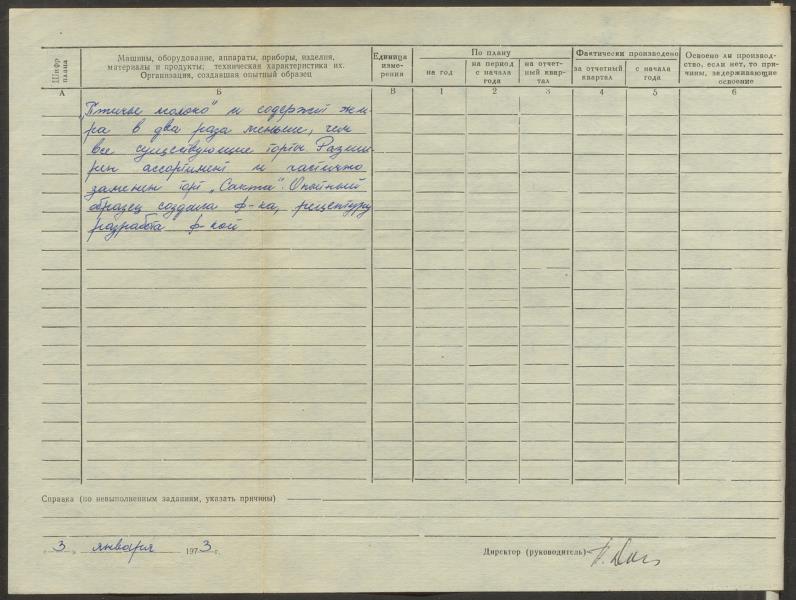 Шифр плана
Машины, оборудование, аппараты, приборы, изделия,
материалы и продукты; техническая характеристика их.
Организация, создавшая опытный образец
Единица
изме-
рения
По плану
на год
на период
с начала
года
на отчет-
ный квар-
тал
Фактически произведено
за отчетный
квартал
с начала
года
Освоено ли производ-
ство, если нет, то при-
чины, задерживающие
освоение
А Б В 1 2 3 4 5 6
„Птичье молоко" и содержит жи-
ра в два раза меньше, чем
все существующие торты Расши-
рен ассортимент и частично
заменен торт „Сакта". Опытный
образец создала ф-ка, рецептуру
разработа ф-кой
Справка (по невыполненным заданиям, указать причины)
„3" января 1973 г.
Директор (руководитель)